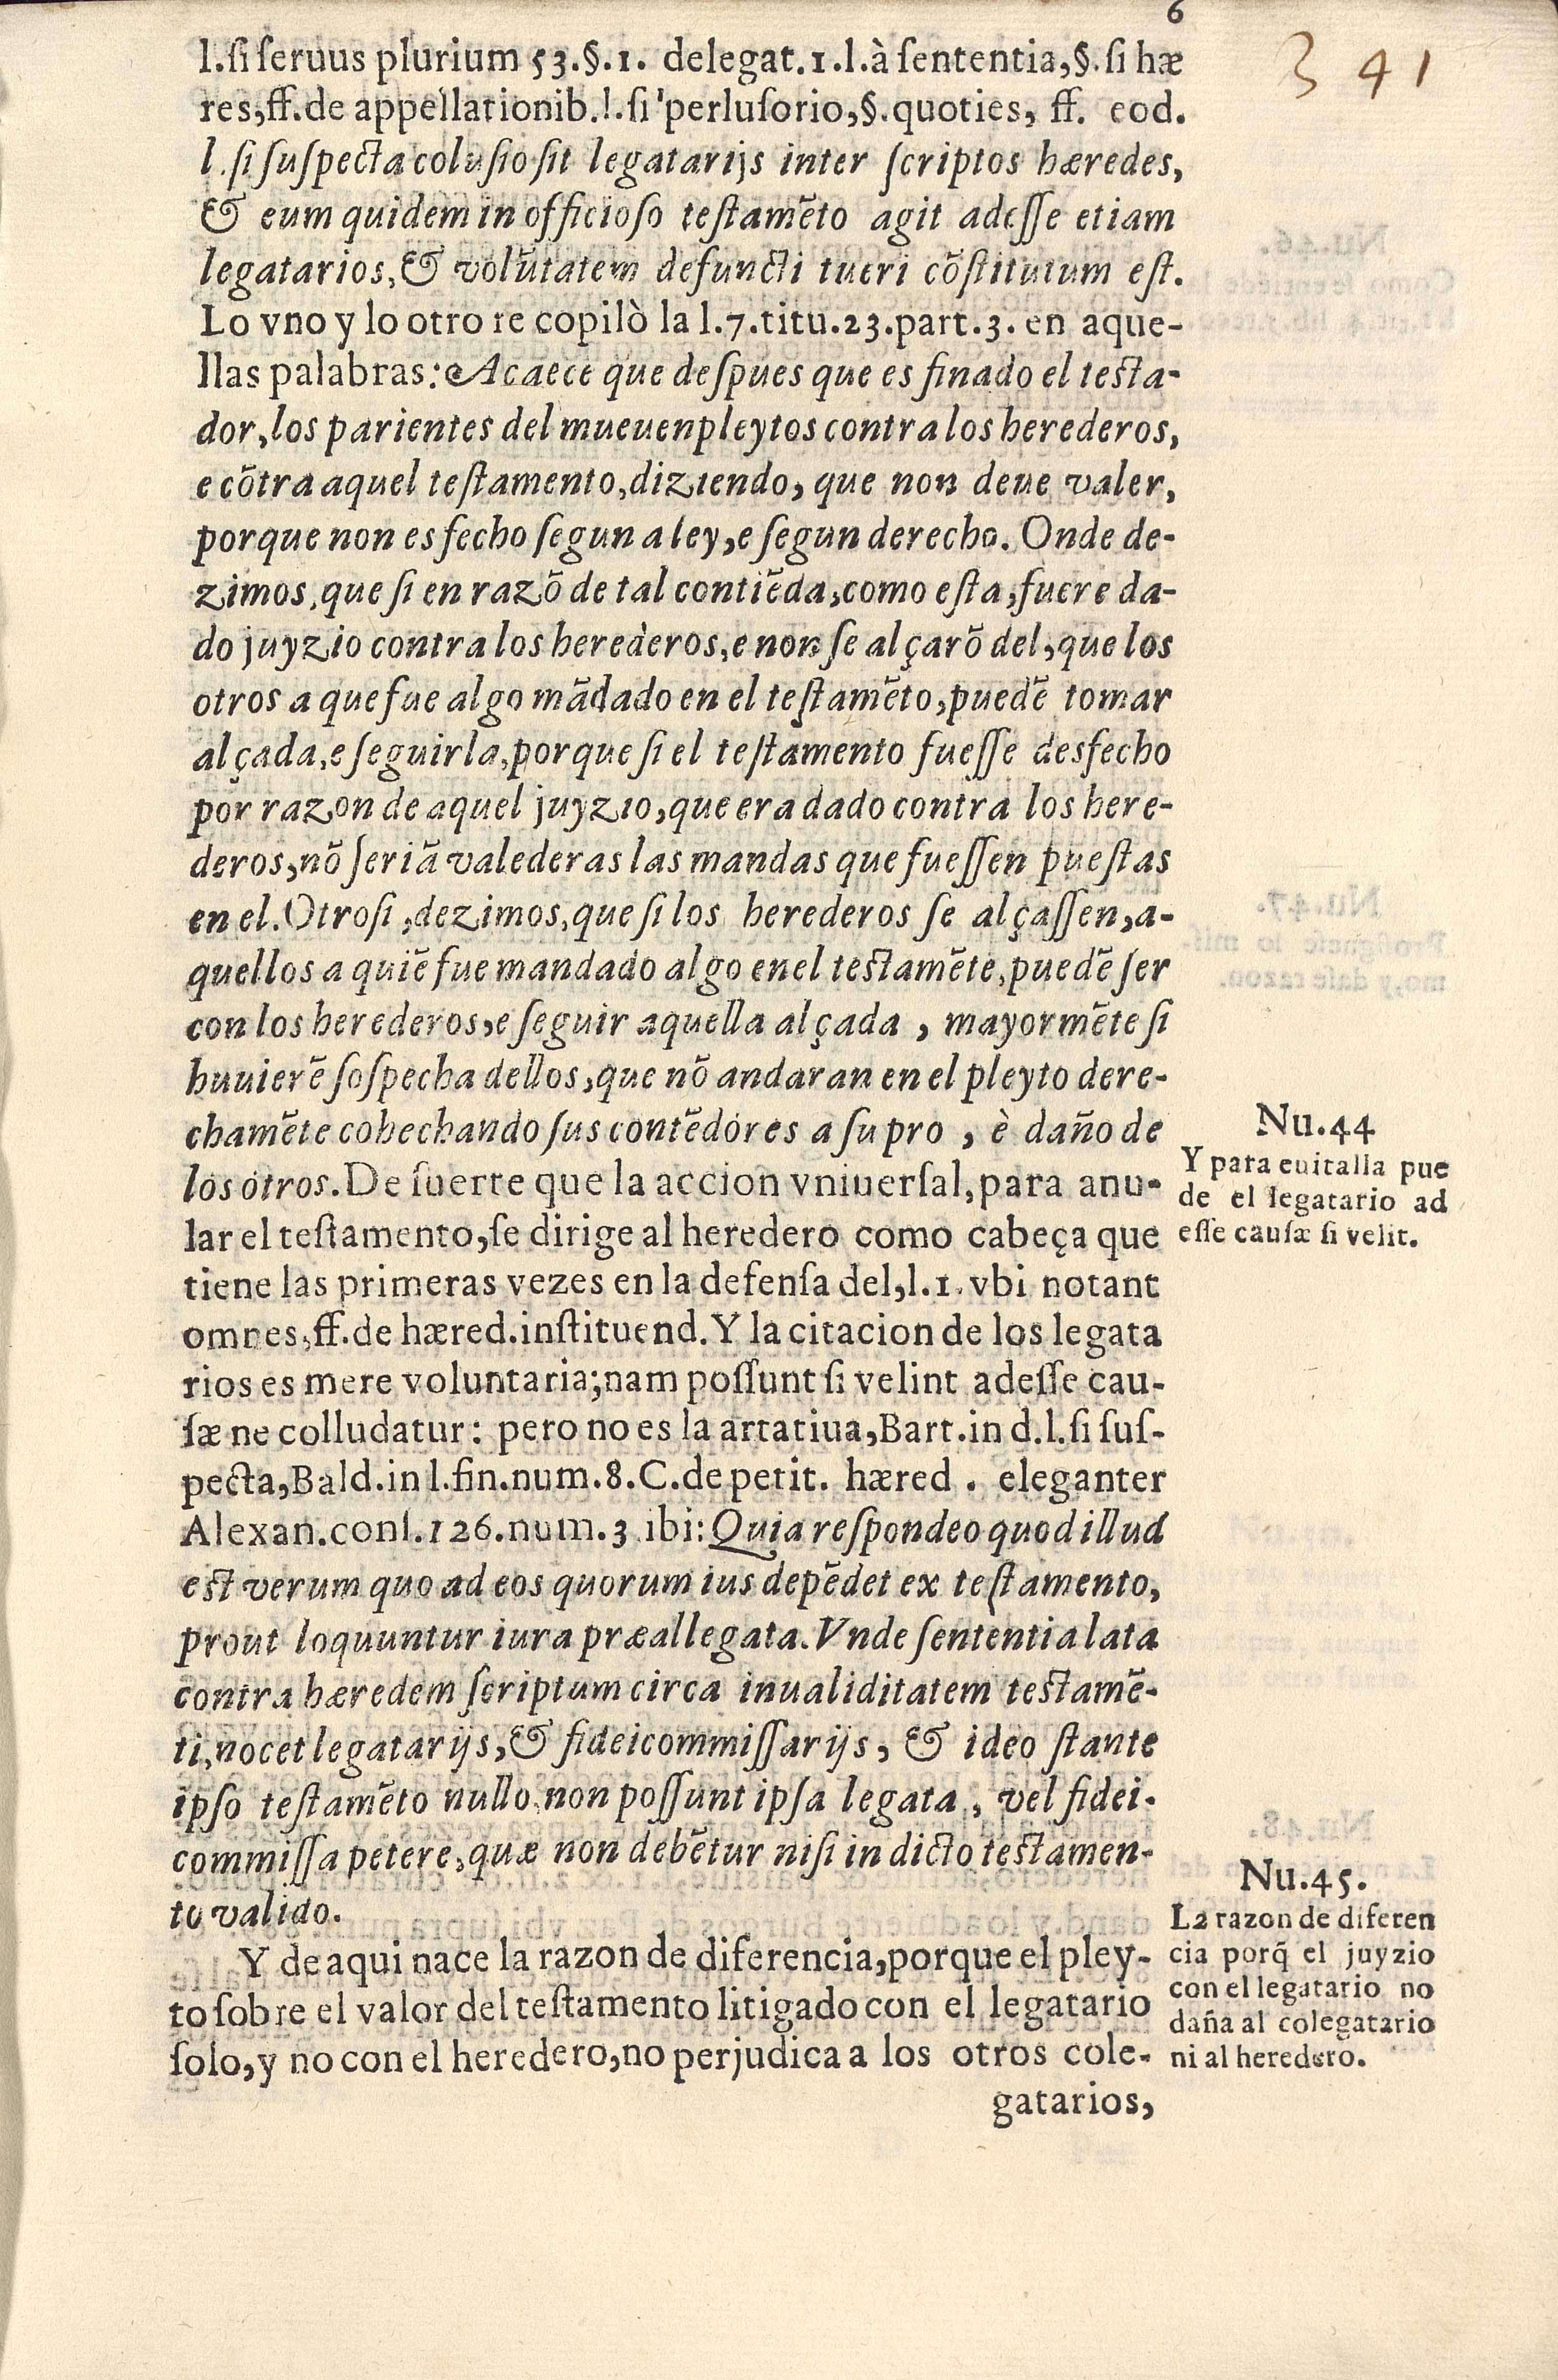 6
341
l.ſi ſeruus plurium 53.§.1. delegat.1.l.à ſententia,§.ſi hæ
res,ff.de appellationib.l.ſi 'perluſorio,§.quoties, ff. eod.
l.ſi ſuſpecta coluſio ſit legatarijs inter ſcriptos hæredes,
& eum quidem in officioſo teſtamẽto agit adeſſe etiam
legatarios,& volũtatem defuncti tueri cõſtitutum eſt.
Lo vno y lo otro re copilò la l.7.titu.23.part.3. en aque-
llas palabras: Acaece que deſpues que es finado el teſta-
dor,los parientes del mueuen pleytos contra los herederos,
e cõtra aquel teſtamento,diziendo, que non deue valer,
porque non es fecho ſegun a ley,e ſegun derecho. Onde de-
zimos,que ſi en razõ de tal contiẽda,como eſta,fuere da-
do juyzio contra los herederos,e non ſe alçarõ del,que los
otros a que fue algo mãdado en el teſtamẽto,puedẽ tomar
alçada,e ſeguirla,porque ſi el teſtamento fueſſe desfecho
por razon de aquel juyzio,que era dado contra los here-
deros,nõ ſeriã valederas las mandas que fueſſen pueſtas
en el.Otroſi,dezimos,que ſi los herederos ſe alçaſſen,a-
quellos a quiẽ fue mandado algo en el teſtamẽte,puedẽ ſer
con los herederos,e ſeguir aquella alçada, mayormẽte ſi
huuierẽ ſoſpecha dellos,que nõ andaran en el pleyto dere-
chamẽte cohechando ſus contẽdores a ſu pro, è daño de
los otros. De ſuerte que la accion vniuerſal,para anu-
lar el teſtamento,ſe dirige al heredero como cabeça que
tiene las primeras vezes en la defenſa del,l.1.vbi notant
omnes,ff.de hæred.inſtituend.Y la citacion de los legata
rios es mere voluntaria;nam poſſunt ſi velint adeſſe cau-
ſæ ne colludatur: pero no es la artatiua,Bart.in d.l.ſi ſuſ-
pecta,Bald.in l.fin.num.8.C.de petit. hæred. eleganter
Alexan.conſ.126.num.3 ibi: Quia reſpondeo quod illud
eſt verum quo ad eos quorum ius depẽdet ex teſtamento,
prout loquuntur iura præallegata.Vnde ſententia lata
contra hæredem ſcriptum circa inualiditatem teſtamẽ-
ti,nocet legatarijs,& fideicommiſſarijs, & ideo ſtante
ipſo teſtamẽto nullo,non poſſunt ipſa legata, vel fidei-
commiſſa petere,quæ non debẽtur niſi in dicto teſtamen-
to valido.
Y de aqui nace la razon de diferencia,porque el pley-
to ſobre el valor del teſtamento litigado con el legatario
ſolo,y no con el heredero,no perjudica a los otros cole-
gatarios,
Nu.44
Y para euitalla pue
de el legatario ad
eſſe cauſæ ſi velit.
Nu.45.
La razon de diferen
cia porq̃ el juyzio
con el legatario no
daña al colegatario
ni al heredero.